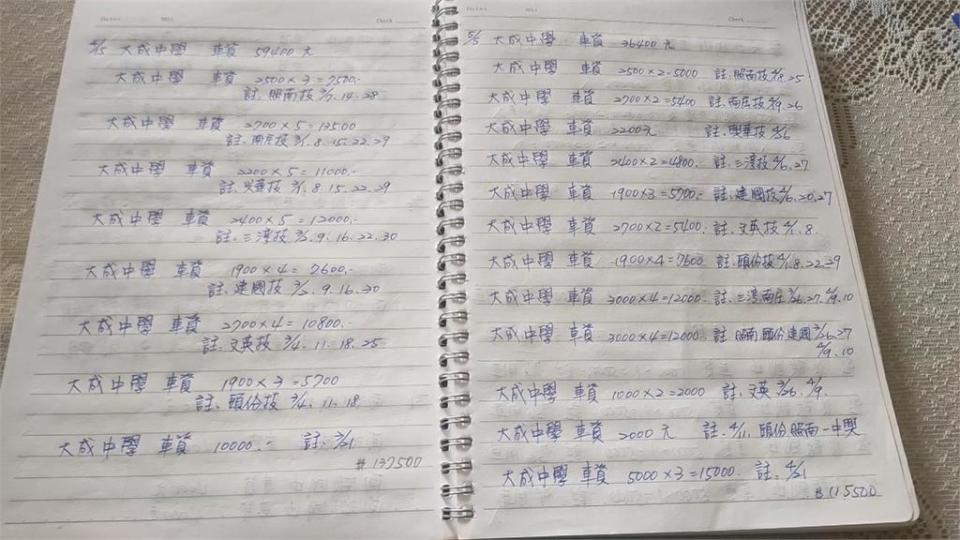 大成中學 車資 59400元
大成中學 車資 2500×3=7500.-
註.照南技 3/7.14.28
大成中學 車資 2700×5=13500
註.南庄技 3/1.8.15.22.29
大成中學 車資 2200×5=11000.-
註.興華技 3/1.8.15.22.29
大成中學 車資 2400×5=12000.-
註.三灣技 3/2.9.16.22.30
大成中學 車資 1900×4=7600.-
註.建國技 3/2.9.16.30
大成中學 車資 2700×4=10800.-
註.文英技 3/4.11.18.25
大成中學 車資 1900×3=5700
註.頭份技 3/4.11.18
大成中學 車資 10000.- 註:3/21
#137500
5/5 大成中學 車資 36400元
大成中學 車資 2500×2=5000 註.照南技 25
大成中學 車資 2700×2=5400 註.南庄技 26
大成中學 車資 2200元 註.興華技
大成中學 車資 2400×2=4800.- 註.三灣技 4/6.27
大成中學 車資 1900×3=5700- 註.建國技 4/6.20.27
大成中學 車資 2700×2=5400. 註.文英技 4/1.8.
大成中學 車資 1900×4=7600 註.頭份技 4/1.8.22.29
大成中學 車資 3000×4=12000.- 註.三灣南庄 3/26.27.4/9.10
大成中學 車資 3000×4=12000- 註.照南頭份建國 3/26.27
4/9.10
大成中學 車資 1000×2=2000 註.文英 3/26.4/9.
大成中學 車資 2000元 註.4/11.頭份照南-中興
大成中學 車資 5000×3=15000. 註.4/21
#115500